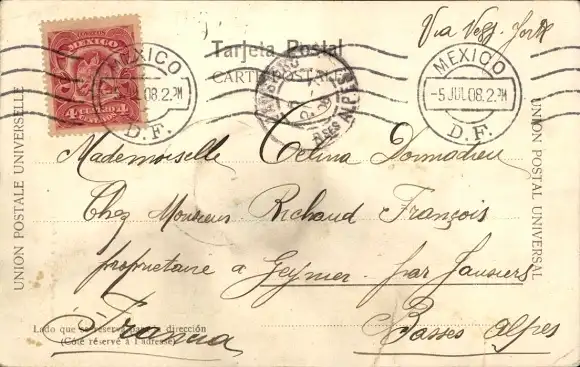 Via Vera York
CORREOS
MEXICO
4 CUATRO 4
CENTAVOS
MEXICO
5 JUL 08. 2. PM
D.F.
Tarjeta Postal
CARTE POSTALE
ALPES
MEXICO
-5 JUL 08. 2. PM
D.F.
UNION POSTALE UNIVERSELLE
UNION POSTAL UNIVERSAL
Mademoiselle Celina Donnadieu
Chez Monsieur Richaud François
propriétaire à Geynier par Jausiers
Basses Alpes
Francia
Lado que se reserva para la dirección
(Côté réservé à l'adresse)